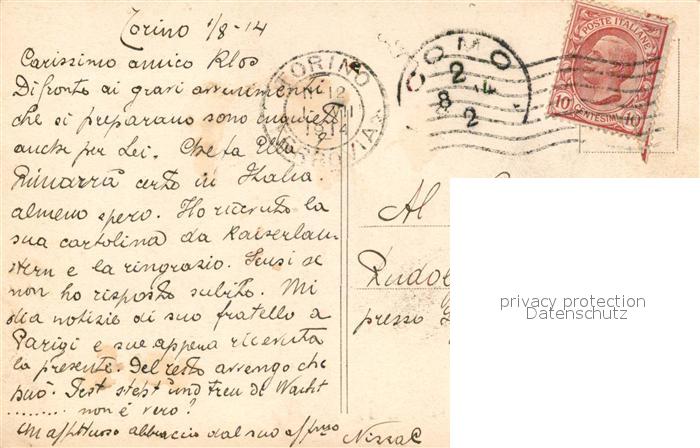 Torino 1/8-14
Carissimo amico Klos
Di fronte ai gravi avvenimenti
che si preparano sono inquieto
anche per Lei. Che fa Ella
Rimarrà certo in Italia
almeno spero. Ho ricevuto la
sua cartolina da Kaiserlau-
stern e la ringrazio. Scusi se
non ho risposto subito. Mi
dia notizie di suo fratello a
Parigi e sue appena ricevuta
la presente. Del resto avvengo che
può. Fest steht und treu die Wacht
........ non è vero?
Un affettuoso abbraccio dal suo aff.mo
TORINO
12
1914
FERROVIA
COMO
2
8
2
POSTE ITALIANE
10 CENTESIMI 10
Al
Rudol
presso
privacy protection
Datenschutz